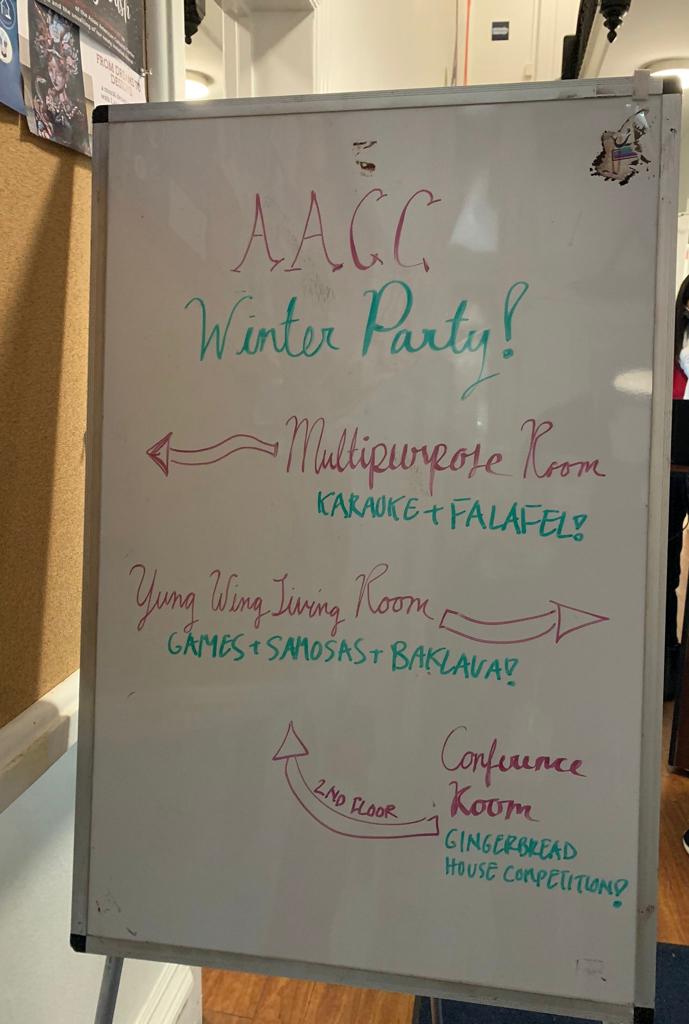 FROM DREAMS
AACC
Winter Party!
Multipurpose Room
KARAOKE + FALAFEL!
Yung Wing Living Room
GAMES + SAMOSAS + BAKLAVA!
Conference
Room
2ND FLOOR
GINGERBREAD
HOUSE COMPETITION!